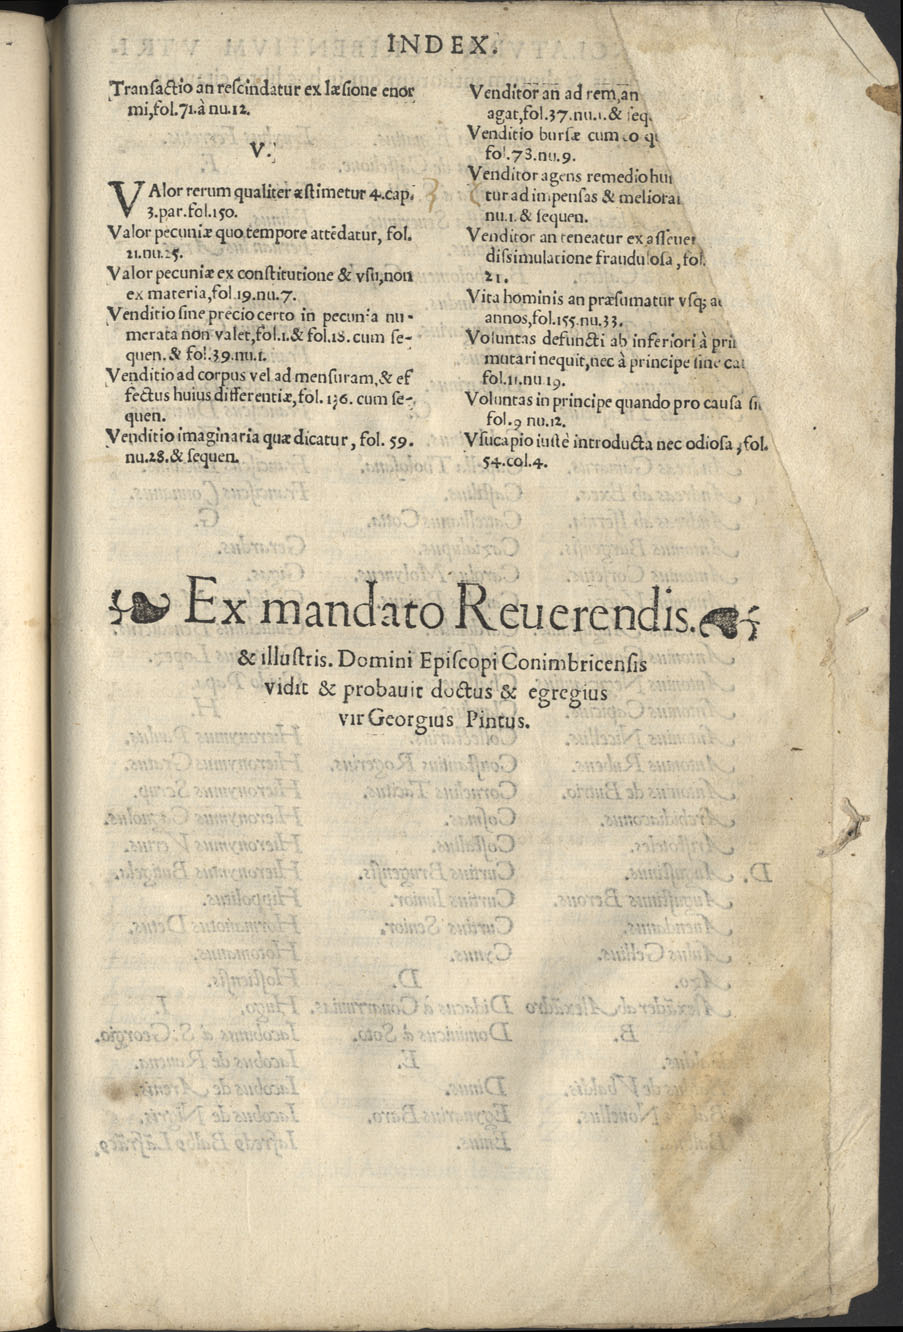 INDEX.
Transactio an rescindatur ex læsione enor
mi,fol.71.à nu.12.
V.
VAlor rerum qualiter æstimetur 4.cap.
3.par.fol.150.
Valor pecuniæ quo tempore attēdatur, fol.
21.nu.25.
Valor pecuniæ ex constitutione & vsu,non
ex materia,fol.19.nu.7.
Venditio sine precio certo in pecunia nu-
merata non valet,fol.1.& fol.18. cum se-
quen.& fol.39.nu.1.
Venditio ad corpus vel ad mensuram,& ef
fectus huius differentiæ,fol. 136. cum se-
quen.
Venditio imaginaria quæ dicatur, fol. 59.
nu.28.& sequen.
Venditor an ad rem,an
agat,fol.37.nu.1.& seq
Venditio bursæ cum eo
fol.78.nu.9.
Venditor agens remedio
tur ad impensas & meliora
nu.1.& sequen.
Venditor an teneatur ex asseuer
dissimulatione fraudulosa, fol.
21.
Vita hominis an præsumatur vsq;
annos,fol.155.nu.33.
Voluntas defuncti ab inferiori à pri
mutari nequit,nec à principe sine
fol.11.nu.19.
Voluntas in principe quando pro causa
fol.9 nu.12.
Vsucapio iustè introducta nec odiosa,fol.
54.col.4.
Ex mandato Reuerendis.
& illustris. Domini Episcopi Conimbricensis
vidit & probauit doctus & egregius
vir Georgius Pintus.